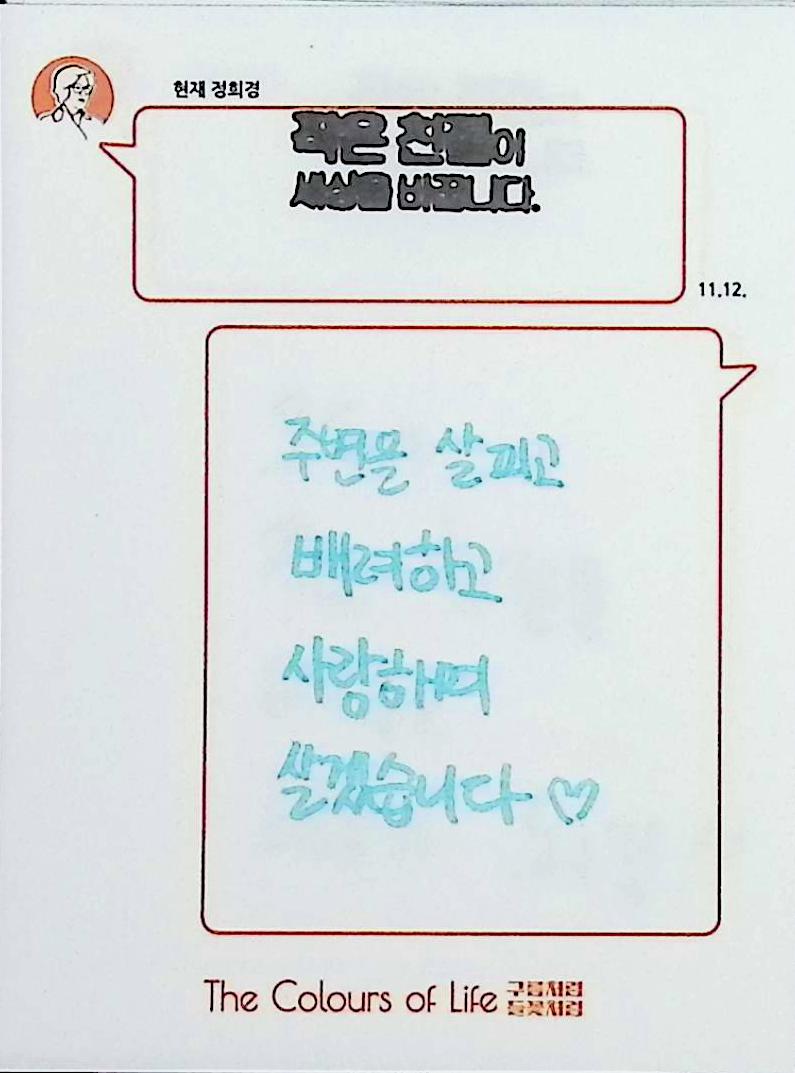 현재 정희경
작은 친절이
세상을 바꿉니다.
11.12.
주변을 살피고
배려하고
사랑하며
살겠습니다 ♡
The Colours of Life 구름처럼
들꽃처럼